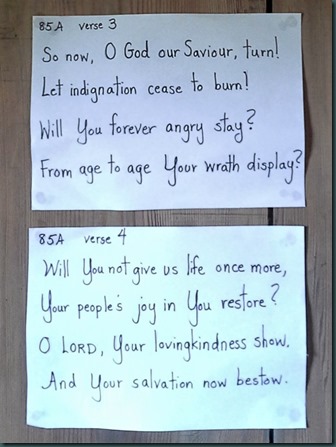 85A verse 3
So now, O God our Saviour, turn!
Let indignation cease to burn!
Will You forever angry stay?
From age to age Your wrath display?
85A verse 4
Will You not give us life once more,
Your people's joy in You restore?
O LORD, Your lovingkindness show.
And Your salvation now bestow.